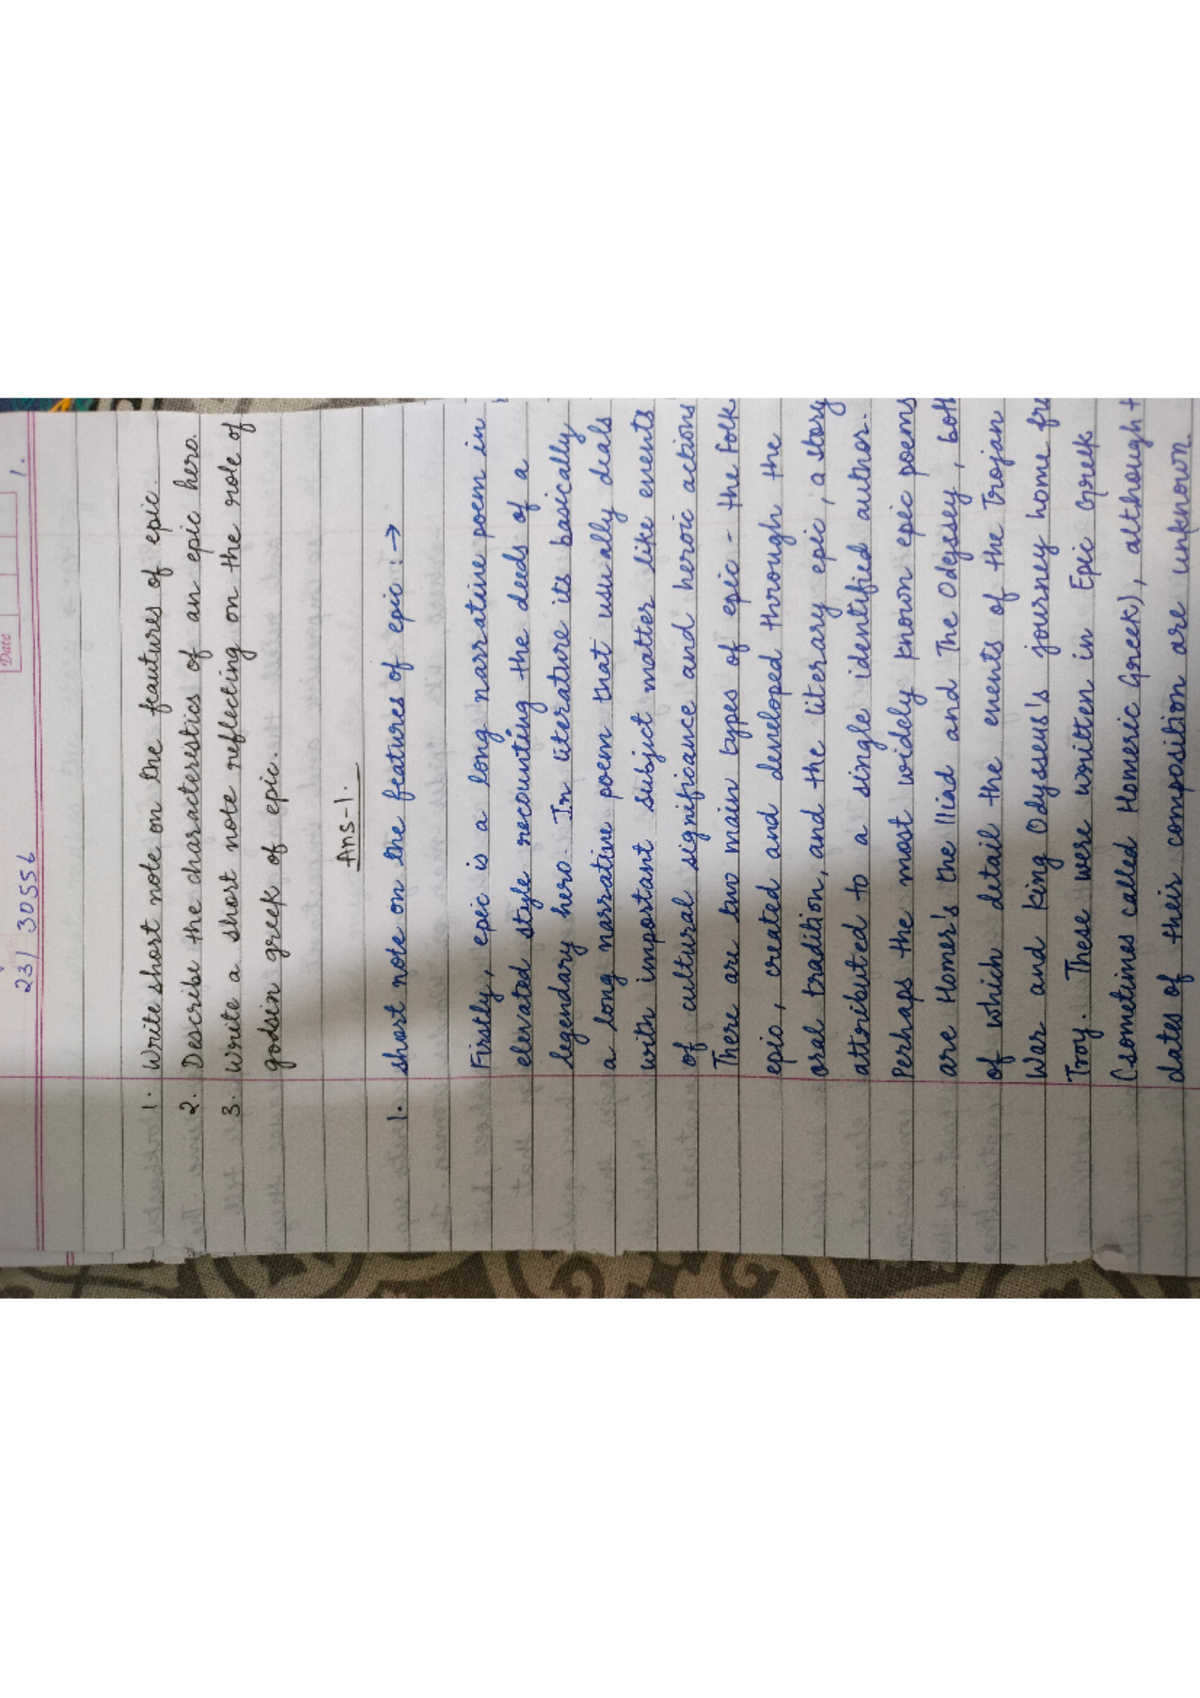 Date
1.
23/30556
1. Write short note on the features of epic.
2. Describe the characterestics of an epic hero.
3. Write a short note reflecting on the role of
godsin greek of epic.
Ans-1.
1. short note on the features of epic :→
Firstly, epic is a long narrative poem in
elevated style recounting the deeds of a
legendary hero. In literature its basically
a long narrative poem that usually deals
with important subject matter like events
of cultural significance and heroic actions
There are two main types of epic - the folk
epic, created and developed through the
oral tradition, and the literary epic, a story
attributed to a single identified author.
Perhaps the most widely known epic poems
are Homer's the Iliad and The Odyssey, both
of which detail the events of the Trojan
War and king Odysseus's journey home fr
Troy. These were written in Epic Greek
(sometimes called Homeric Greek), although t
dates of their composition are unknown.